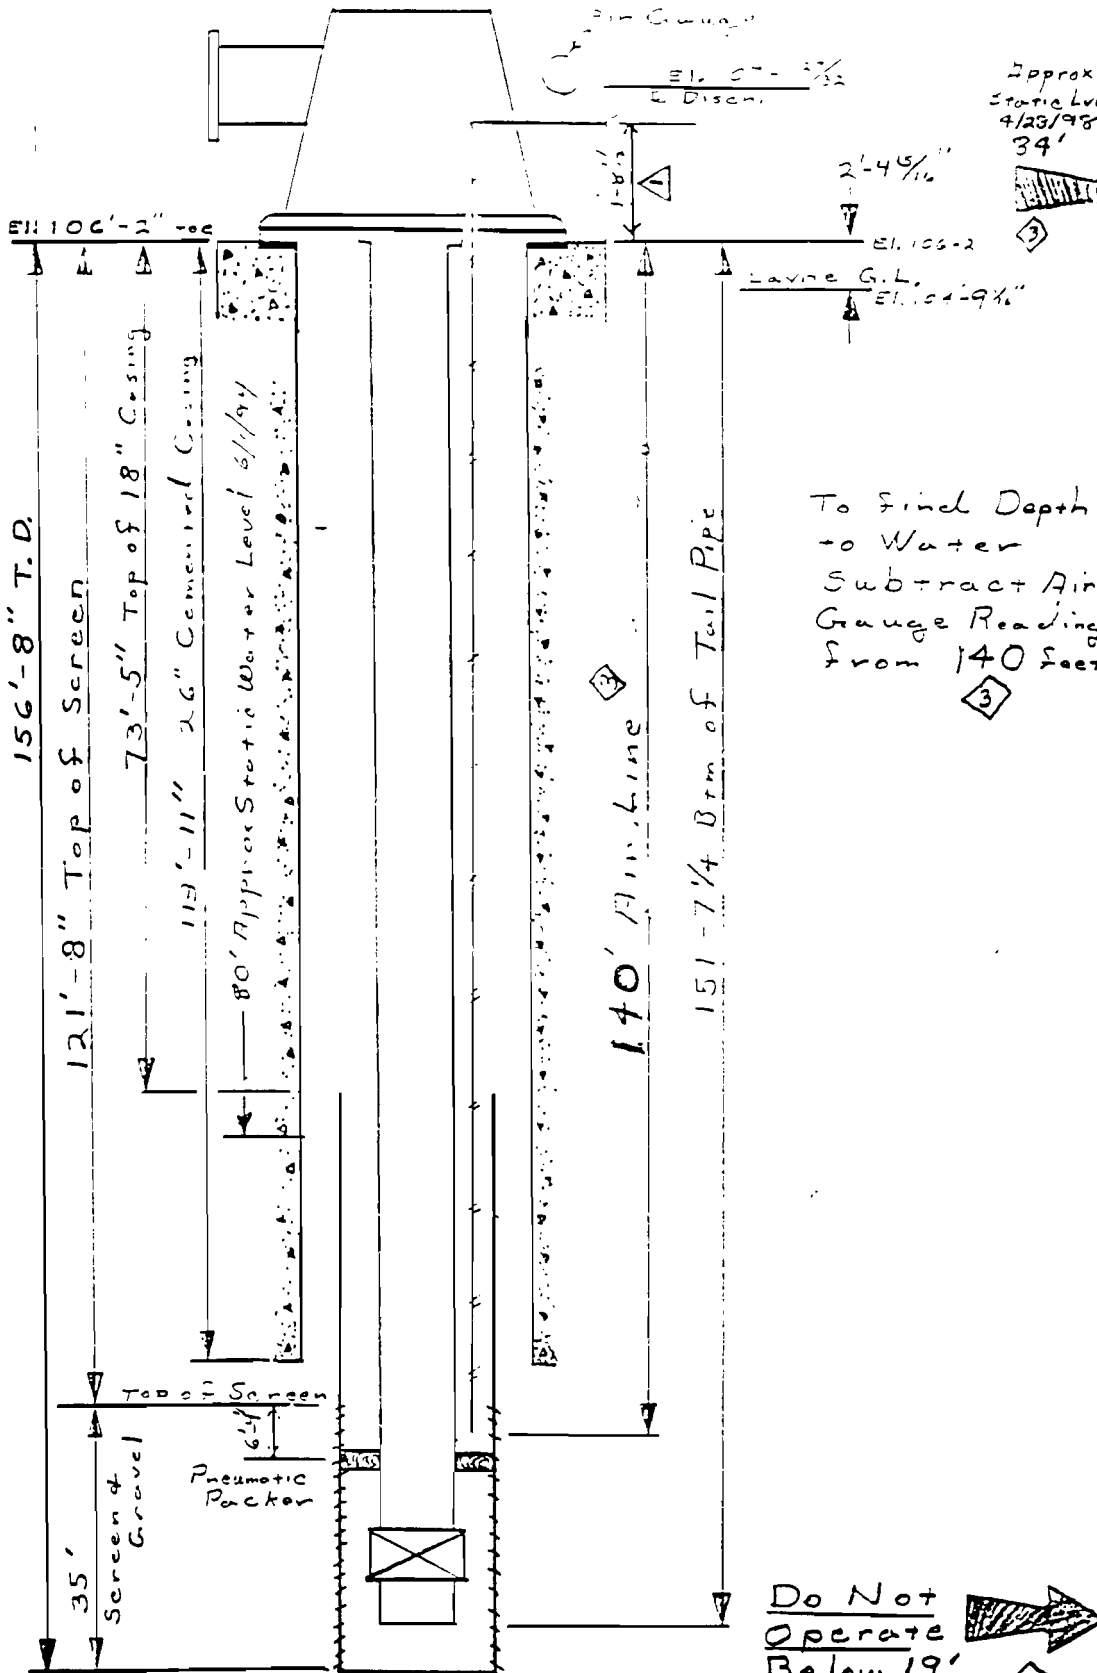 Air Gauge
El.
Disch.
Approx
Static Lvl
4/23/98
34'
3
1'-8½"
1
2'-4 15/16"
El. 106'-2" TOC
El. 106-2
G.L.
El. 104'-9 1/16"
156'-8" T.D.
121'-8" Top of Screen
73'-5" Top of 18" Casing
113'-11" 26" Cemented Casing
80' Approx Static Water Level 6/1/94
140' Air Line
3
151-7¼ Btm of Tail Pipe
To find Depth
to Water
Subtract Air
Gauge Reading
from 140 feet
3
Top of Screen
6'-4"
Pneumatic
Packer
35'
Screen &
Gravel
Do Not
Operate
Below 19'